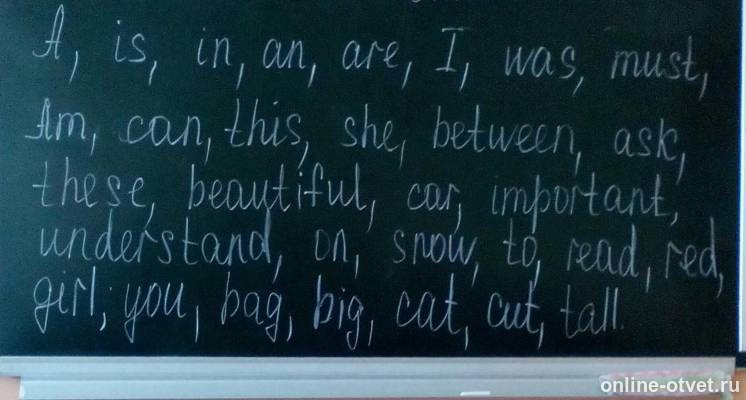 A, is, in, an, are, I, was, must,
Am, can, this, she, between, ask,
these, beautiful, car, important,
understand, on, snow, to, read, red,
girl, you, bag, big, cat, cut, tall.
online-otvet.ru